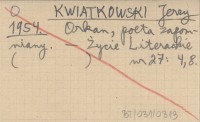 O KWIATKOWSKI Jerzy
1954. Orkan, poeta zapom-
niany. – Życie Literackie
( ) nr 27: 4, 8.